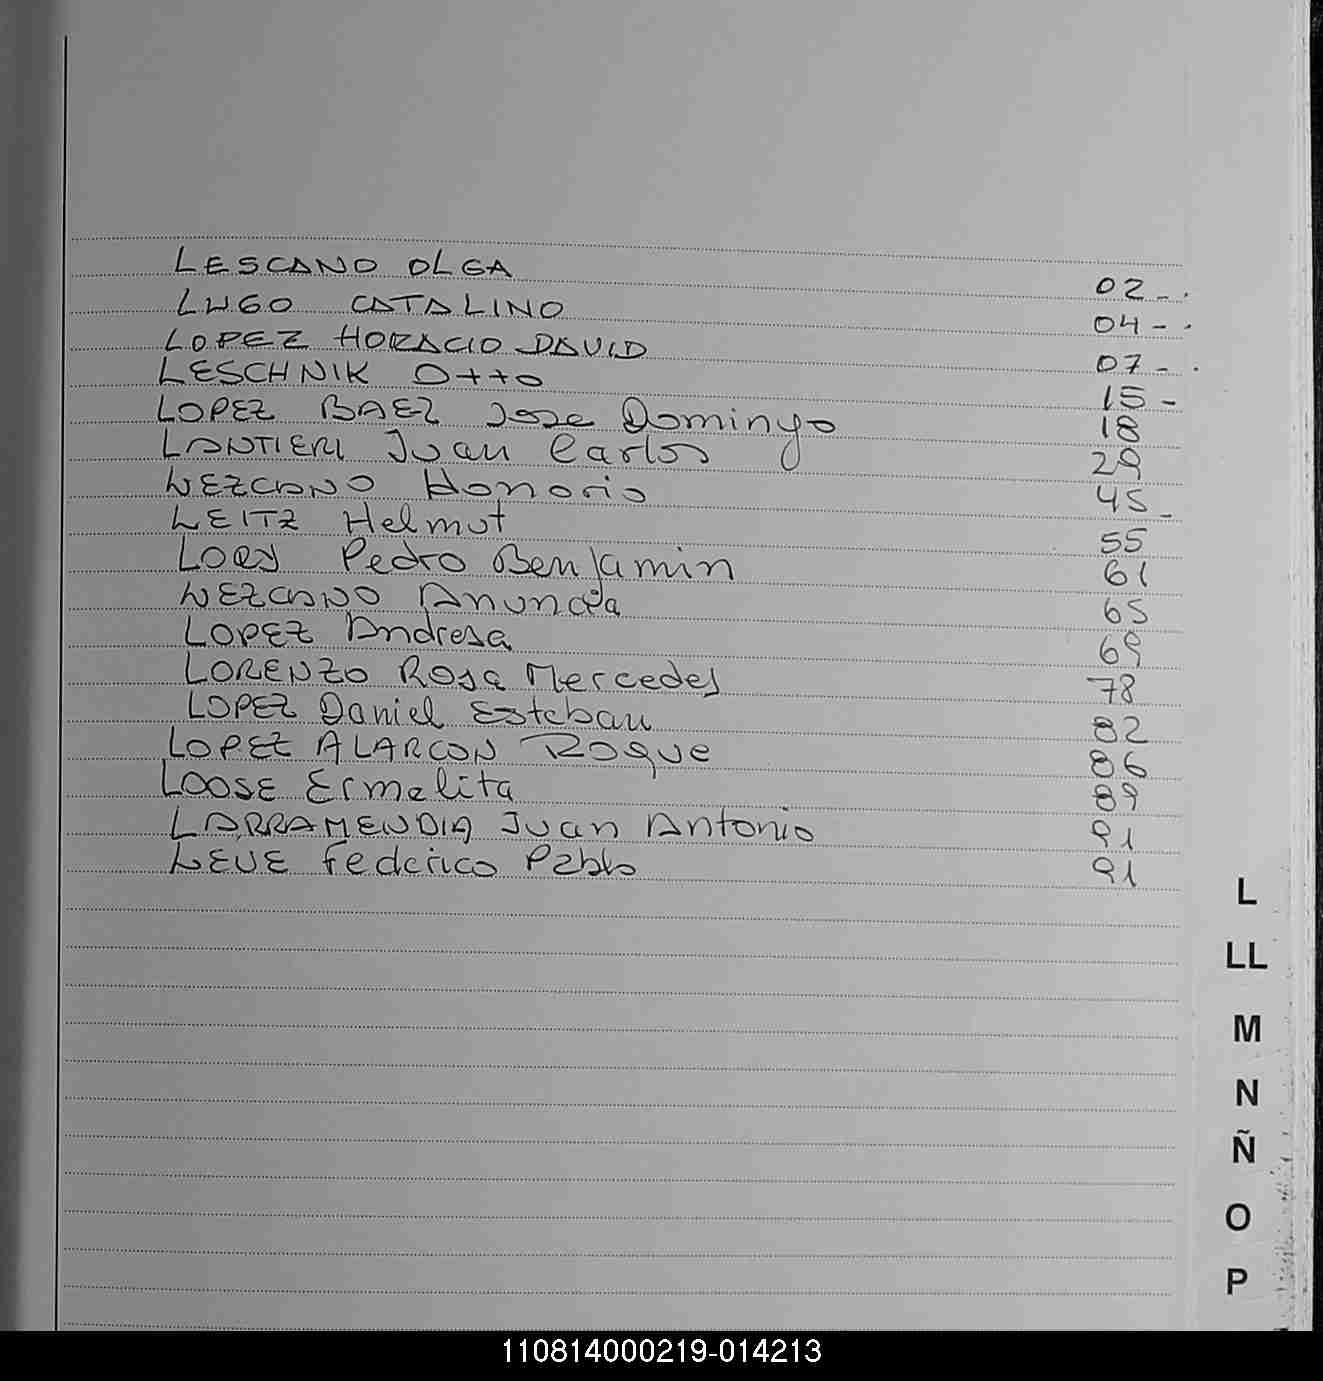 LESCANO OLGA 02 - .
LUGO CATALINO 04 - .
LOPEZ HORACIO DAVID 07 - .
LESCHNIK Otto 15 -
LOPEZ BAEZ Jose Domingo 18
LANTIERI Juan Carlos 29
LEZCANO Honorio 45 -
LEITZ Helmut 55
LORY Pedro Benjamin 61
LEZCANO Anuncia 65
LOPEZ Andresa 69
LORENZO Rosa Mercedes 78
LOPEZ Daniel Esteban 82
LOPEZ ALARCON Roque 86
LOOSE Ermelita 89
LARRAMENDIA Juan Antonio 91
LEUE Federico Pablo 91
L
LL
M
N
Ñ
O
P
110814000219-014213